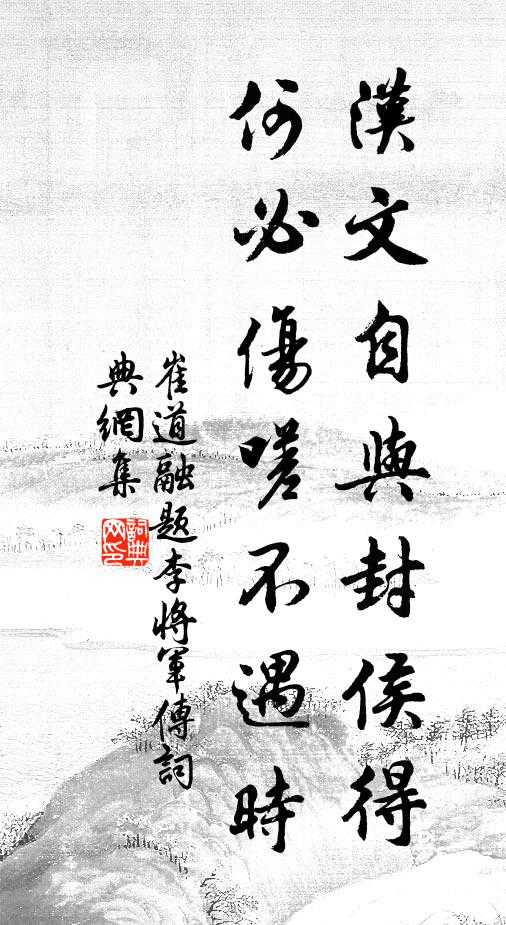 漢文自與封侯得
何必傷嗟不遇時
崔道融題李將軍傳詞
典網集
詞典网印